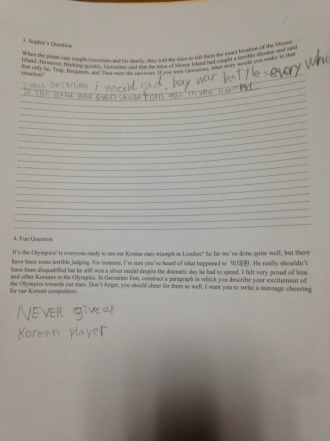 3. Sophie's Question
When the pirate cats caught Geronimo and his family, they told the mice to tell them the exact location of the Mouse
Island. However, thinking quickly, Geronimo said that the mice of Mouse Island had caught a terrible disease and said
that only he, Trap, Benjamin, and Thea were the survivors. If you were Geronimo, what story would you make in that
situation?
I was Geronimo i would sad, boy war battle every whe
in the island and even skeletons was in the island.
4. Fun Question
It's the Olympics! Is everyone ready to see our Korean stars triumph in London? So far we've done quite well, but there
have been some terrible judging. For instance, I'm sure you've heard of what happened to 박태환. He really shouldn't
have been disqualified but he still won a silver medal despite the dramatic day he had to spend. I felt very proud of him
and other Koreans in the Olympics. In Geronimo font, construct a paragraph in which you describe your excitement of
the Olympics towards our stars. Don't forget, you should cheer for them as well. I want you to write a message cheering
for our Korean competitors.
NEVER give up
Korean player